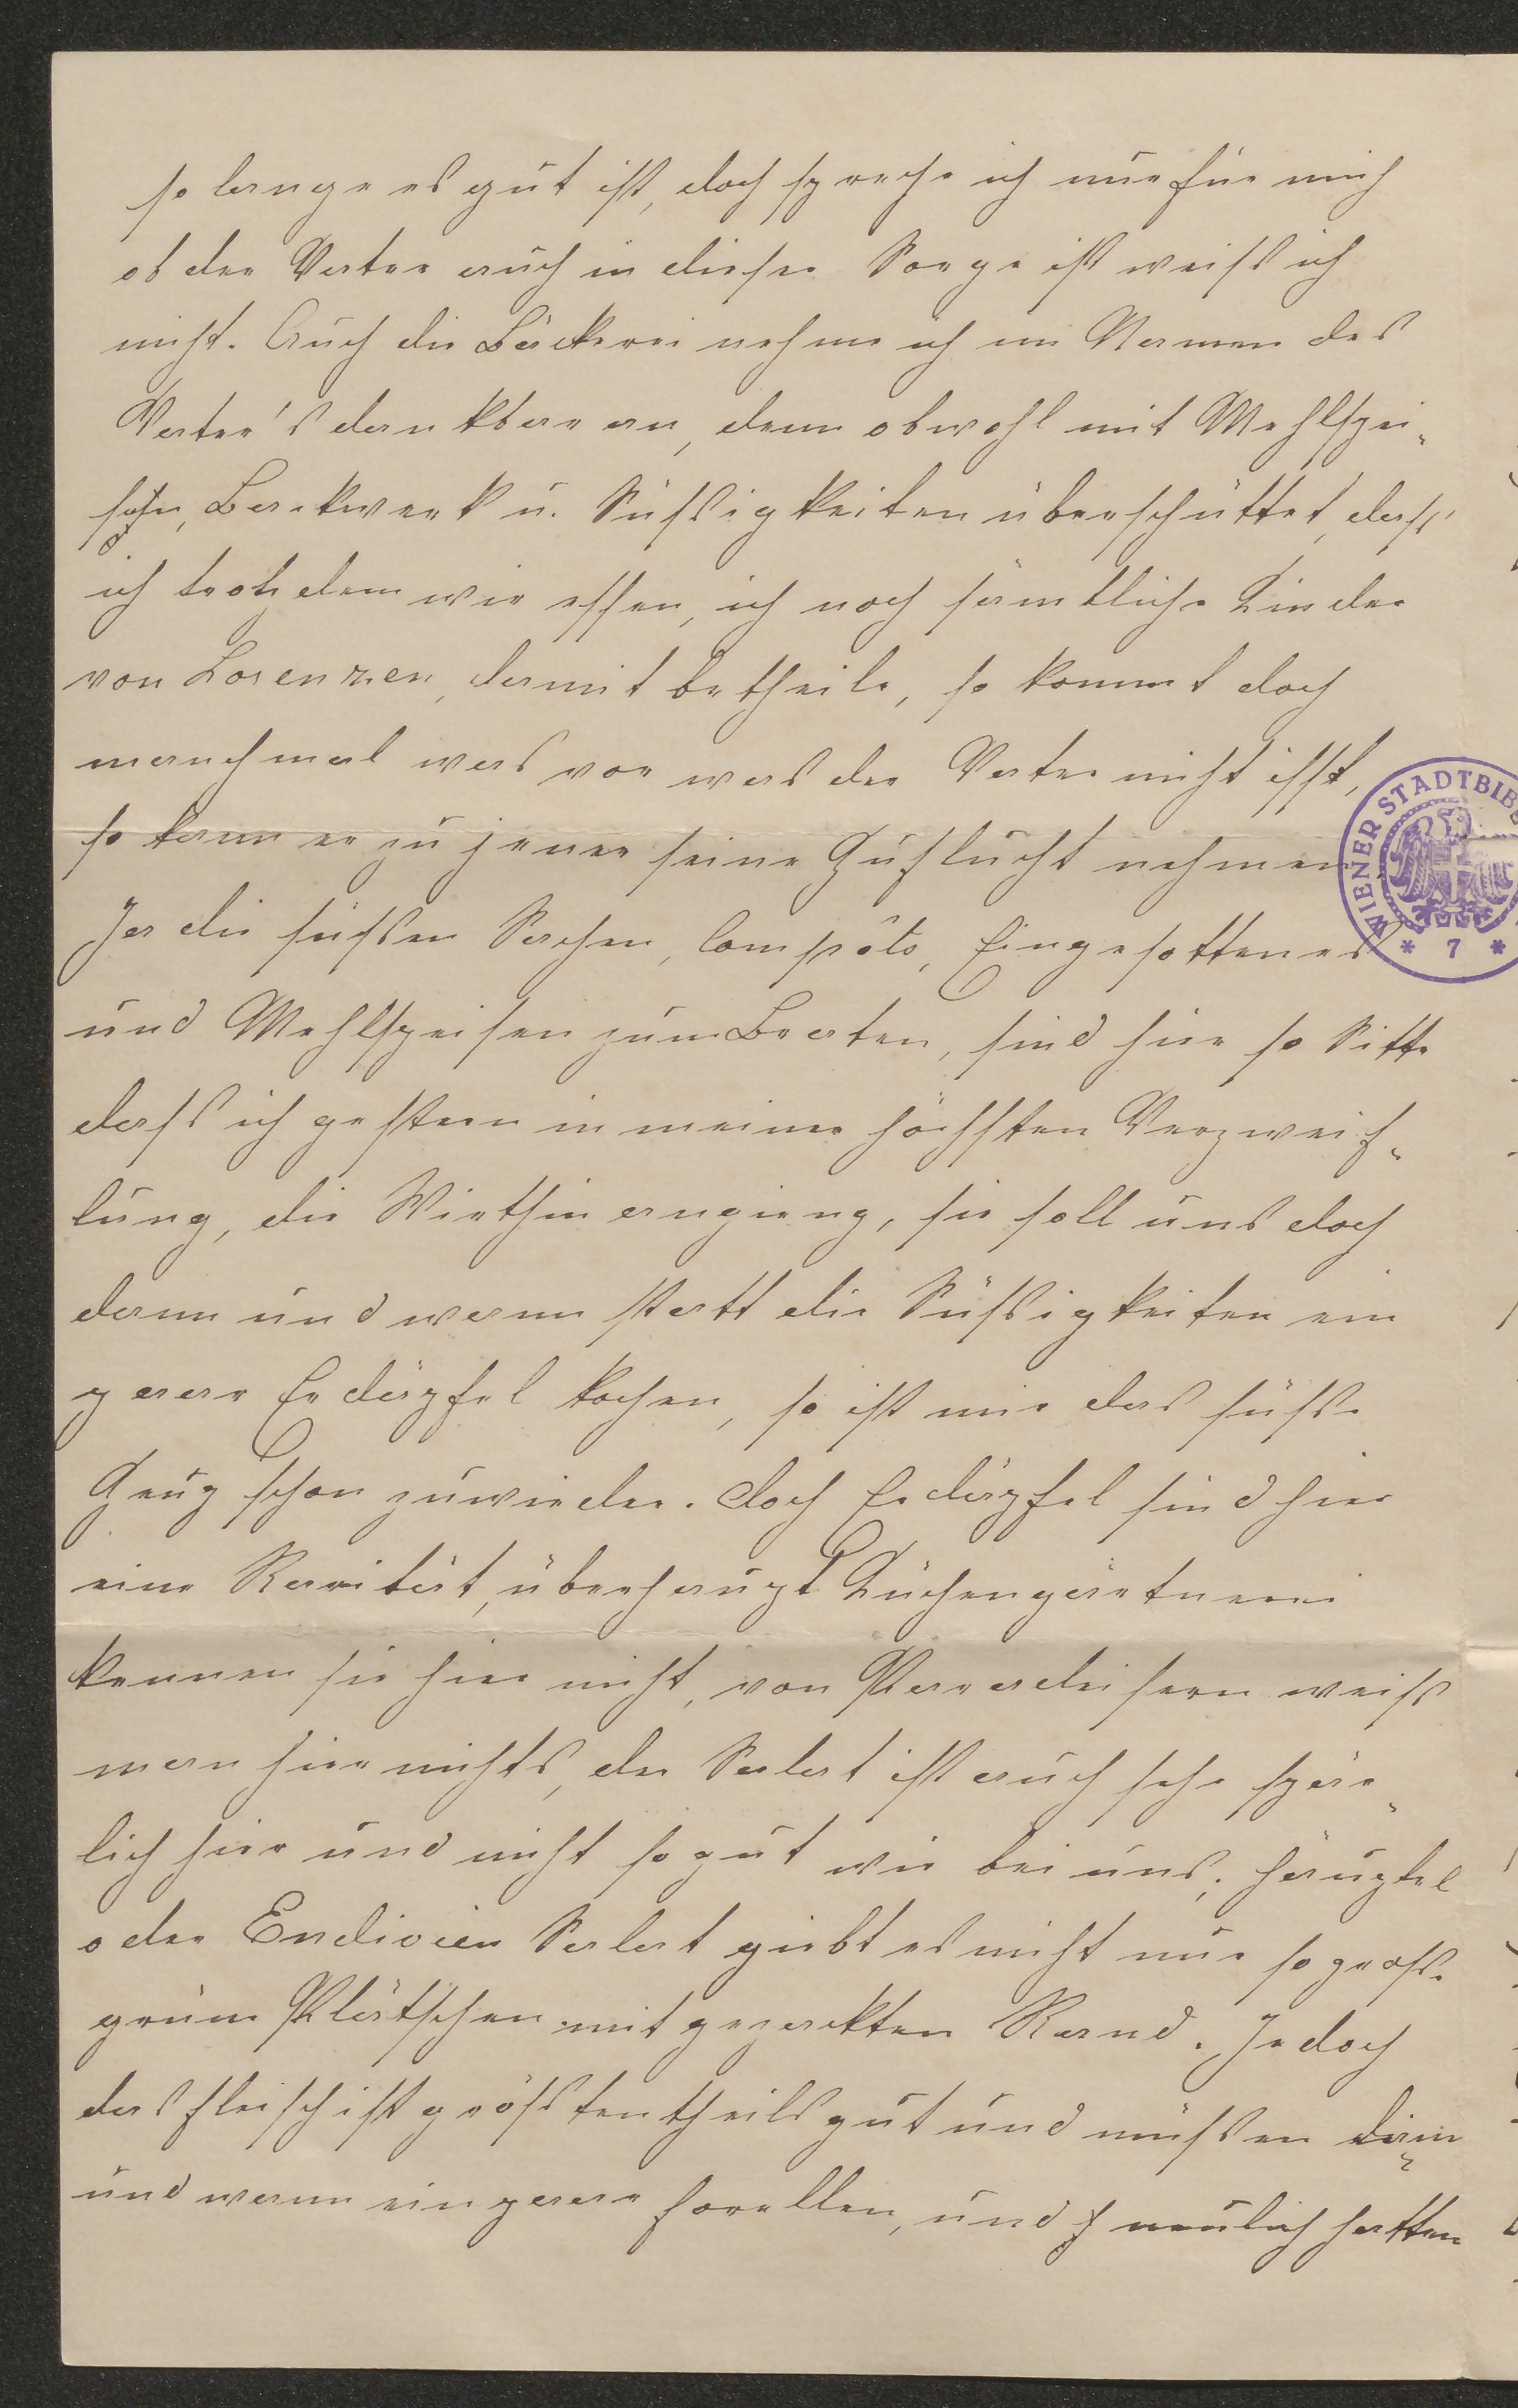 so lange es gut ist, doch spreche ich nur für mich
ob der Vater auch in dieser Sorge ist weiß ich
nicht. Auch die Bäckerei nehme ich im Namen des
Vater's dankbar an, denn obwohl mit Mehlspei-
sen, Backwerk u. Süßigkeiten überschüttet, daß
ich trotzdem wir essen, ich noch sämtliche Kinder
von Lorenzen, damit betheile, so kommt doch
manchmal was vor was der Vater nicht ißt,
so kann er zu jener seine Zuflucht nehmen.
Ja die süßen Sachen, Compôts, Eingesottenes
und Mehlspeisen zum Braten, sind hier so Sitte
daß ich gestern in meiner höchsten Verzweif-
lung, die Wirthin angieng, sie soll uns doch
dann und wann statt die Süßigkeiten ein
paar Erdäpfel kochen, so ist mir das süße
Zeug schon zuwieder. Doch Erdäpfel sind hier
eine Rarität, überhaupt Küchengärtnerei
kennen sie hier nicht, von Paradeisern weiß
man hier nichts, der Salat ist auch sehr spär-
lich hier und nicht so gut wie bei uns, Häuptel
oder Endivien Salat giebt es nicht nur so große
grüne Plätschen mit gezackten Rand. Jedoch
das Fleisch ist größtentheils gut und müßen dann
und wann ein paar Forellen, und neulich hatten
WIENER STADTBIB
* 7 *